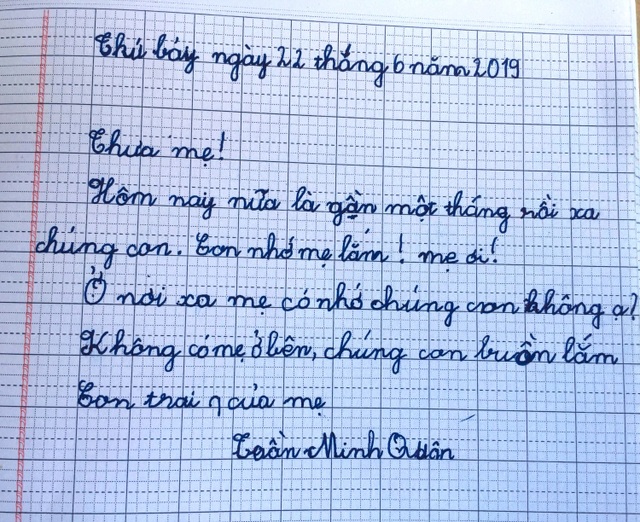 Thứ bảy ngày 22 tháng 6 năm 2019
Thưa mẹ!
Hôm nay nữa là gần một tháng rồi xa
chúng con. Con nhớ mẹ lắm! mẹ ơi!
Ở nơi xa mẹ có nhớ chúng con không ạ?
Không có mẹ ở bên, chúng con buồn lắm
Con trai của mẹ
Trần Minh Quân